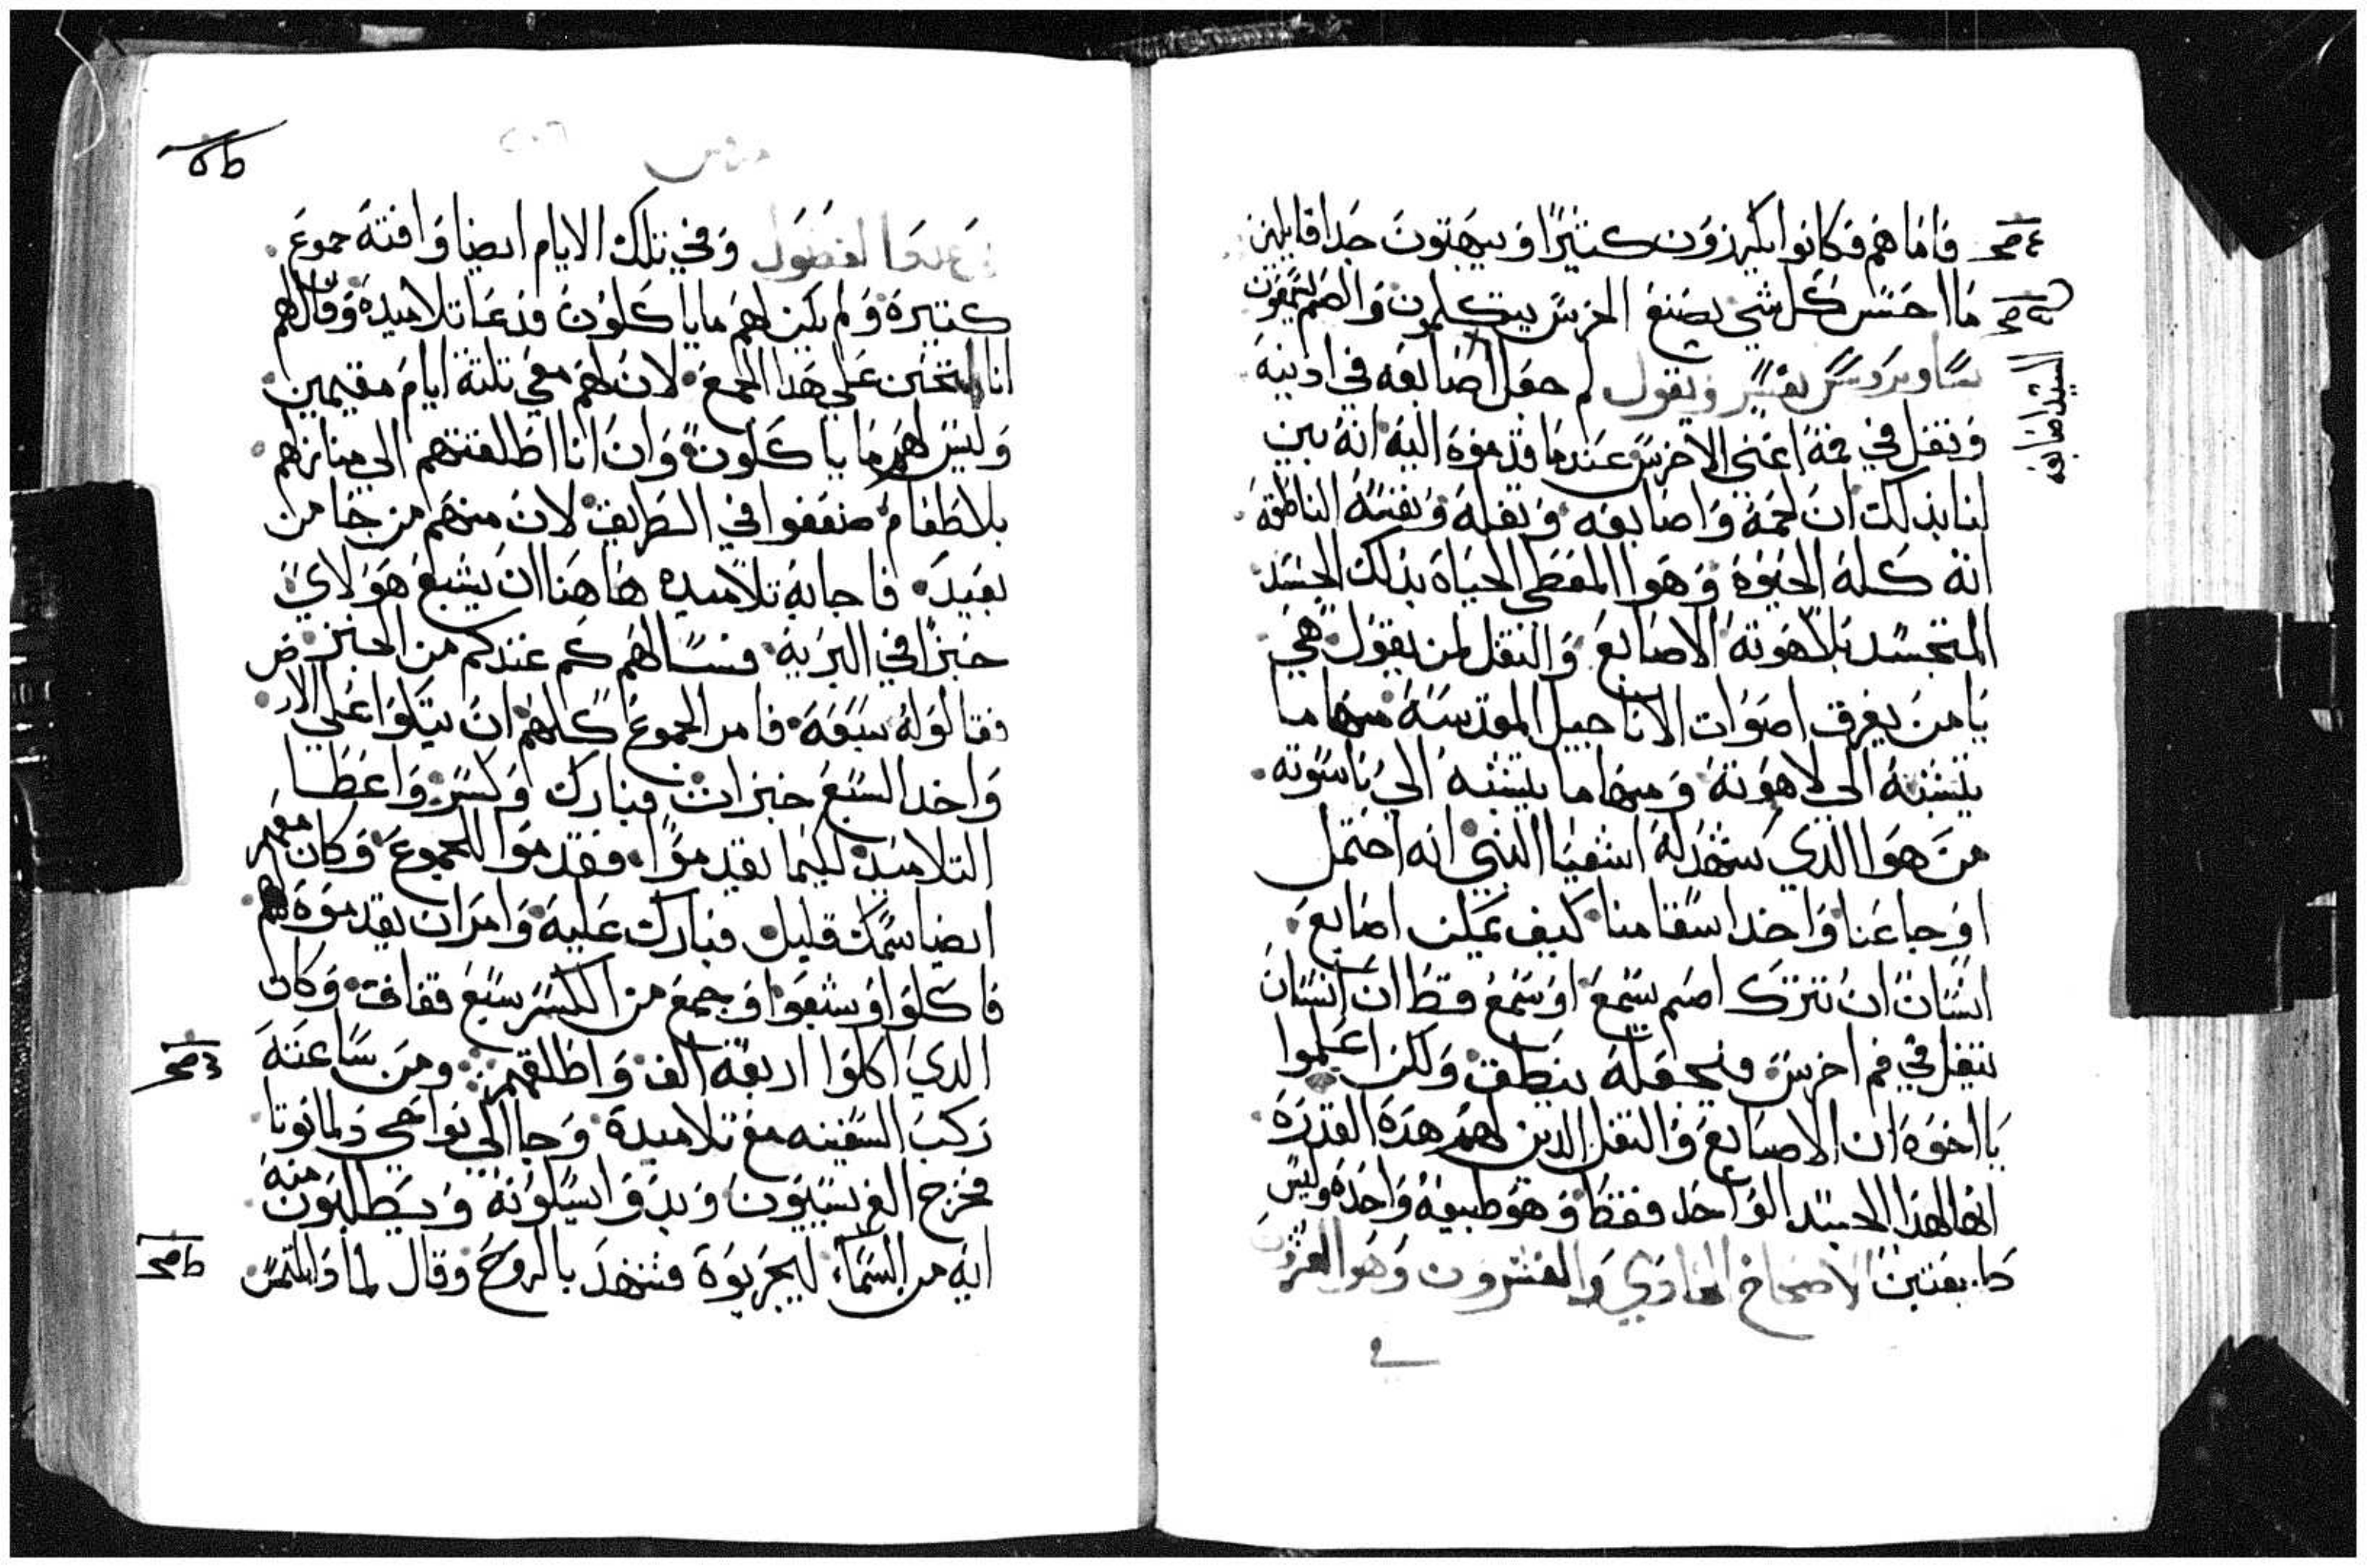 فاما هم فكانوا يكرزون كثيرًا وَيبهتون جدا قايلين
ما احسن كل شي يصنع الخرس يتكلمون والصم يسمعون
ساويرس يفسر ويقول لم جعل اصابعه في ادنيه
السيد اصابعه
وتفل في فمه اعني الاخرس عندما قدموه اليه انه بين
لنا بذلك ان لحمه واصابعه وتفله ونفسه الناطقه
انه كله الحيوه وهوا المعطي الحياه بذلك الجسد
المتجسد بلاهوته الاصابع والتفل لمن يقول هي
يا من يفرق اصوات الاناجيل المقدسه منها ما
ينسبه الي لاهوته ومنها ما ينسبه الي ناسوته
من هوا الذي شهد له اشعيا النبي انه احتمل
اوجاعنا واخد اسقامنا كيف يمكن اصابع
انسان ان تترك اصم يسمع او سمع قط ان انسان
يتفل في فم اخرس فيجعله ينطق ولكن اعلموا
يا اخوه ان الاصابع والتفل الدين لهم هده القدره
انها لهذا الجسد الواحد فقط وهو طبيعه واحده وليس
طبيعتين الاصحاح الحادي والعشرون وهوا العشرون
في
مرقس
وفي تلك الايام ايضا وافته جموع
كتيره ولم يكن لهم ما ياكلون فدعا تلاميده وقال لهم
انا اتحنن علي هدا الجمع لان لهم معي تلته ايام مقيمين
وليس لهم ما ياكلون وان انا اطلقتهم الي منازلهم
بلا طعام ضعفوا في الطريق لان منهم من جا من
بعيد فاجابه تلاميده هاهنا ان يشبع هولاي
خبزا في البريه فسالهم كم عندكم من الخبز
فقالوا له سبعه فامر الجموع كلهم ان يتكوا علي الارض
واخد السبع خبزات فبارك وكسر واعطا
التلاميد ليكيما يقدموا فقدموا للجموع وكان معهم
ايضا سمك قليل فبارك عليه وامر ان يقدموه لهم
فاكلوا وشبعوا وجمع من الكسر سبع قفاف وكان
الدي اكلوا اربعه الف واطلقهم ومن ساعته
ركب السفينه مع تلاميده وجا الي نواحي دلمانوتا
فخرج الفريسيون وبدوا يسيلونه ويطلبون منه
ايه من السماء ليجربوه فتنهد بالروح وقال لما دا يلتمس